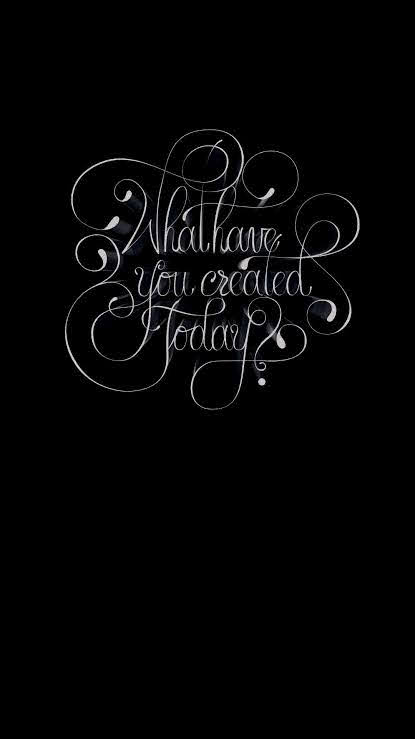 What have
you created
Today?